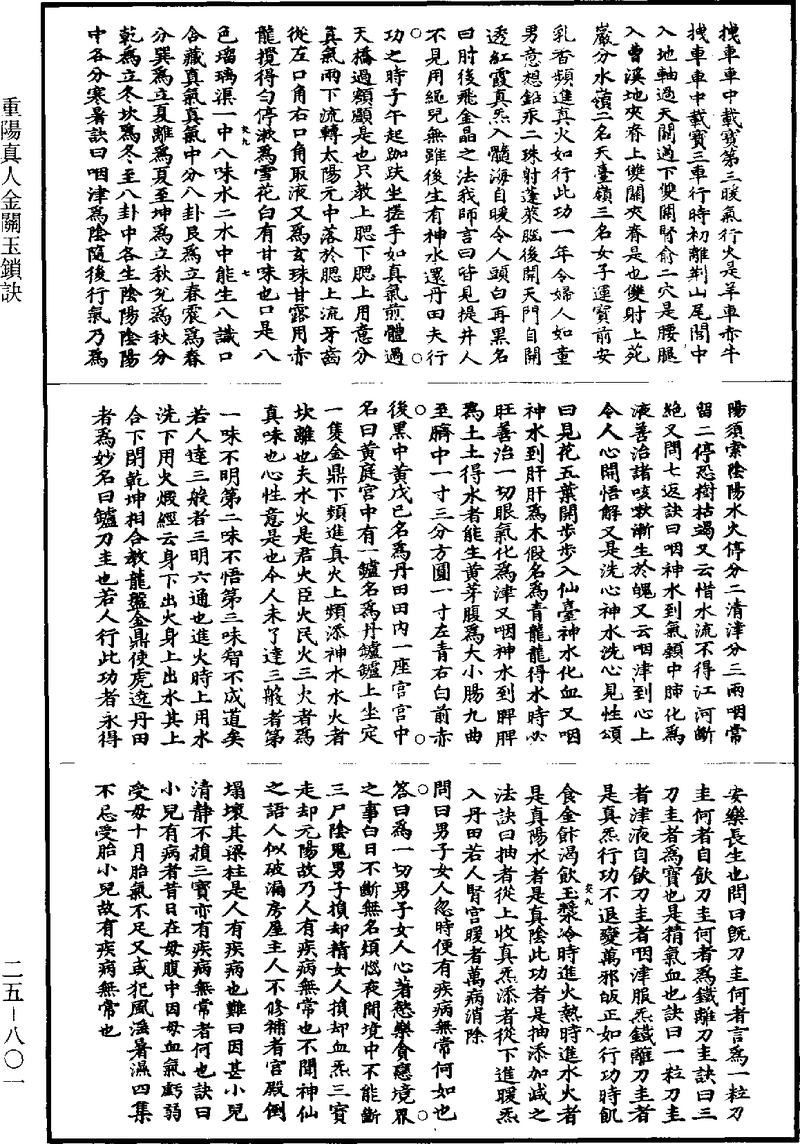 重陽真人金關玉鎖訣
二五－八〇一
找車車中載寶第三暖氣行火是羊車赤牛
找車車中載寶三車行時初離荊山尾閭中
入地軸過天關過下雙關腎俞二穴是腰眼
入曹溪地夾脊上雙關夾脊是也雙射上苑
巖分水嶺二名天臺嶺三名女子運寶前安
乳香頻進真火如行此功一年令婦人如童
男意想鉛汞二珠射蓬萊腦後開天門自開
透紅霞真炁入髓海自暖令人頭白再黑名
曰肘後飛金晶之法我師言曰皆見提井人
不見用繩兒無雖後生有神水還丹田夫行
功之時子午起跏趺坐搓手如真氣煎體過
天橋過顋顱是也只教上腮下腮上用意分
真氣兩下流轉太陽元中落於腮上流牙齒
從左口角右口角取液又為玄珠甘露用赤
龍攪得勻停漱為雪花白有甘味也口是八
色瑠璃渠一中八味水二水中能生八識口
合藏真氣真氣中分八卦艮為立春震為春
分巽為立夏離為夏至坤為立秋兊為秋分
乾為立冬坎為冬至八卦中各生陰陽陰陽
中各分寒暑訣曰咽津為陰隨後行氣乃為
陽須索陰陽水火停分二清津分三兩咽常
留二停恐樹枯竭又云惜水流不得江河斷
絕又問七返訣曰咽神水到氣顙中肺化為
液善治諸咳嗽漸生於魄又云咽津到心上
令人心開悟解又是洗心神水洗心見性頌
曰見花五葉開步步入仙臺神水化血又咽
神水到肝肝為木假名為青龍龍得水時必
旺善治一切眼氣化為津又咽神水到脾脾
為土土得水者能生黃芽腹為大小腸九曲
至臍中一寸三分方圓一寸左青右白前赤
後黑中黃戊己名為丹田田內一座宮宮中
名曰黃庭宮中有一鑪名為丹鑪鑪上坐定
一隻金鼎下頻進真火上頻添神水水火者
坎離也夫水火是君火臣火民火三火者為
真味也心性意是也今人未了達三般者第
一味不明第二味不悟第三味智不成道矣
若人達三般者三明六通也進火時上用水
洗下用火煅經云身下出火身上出水其上
合下閉乾坤相合教龍盤金鼎使虎遶丹田
者為妙名曰鑪刀圭也若人行此功者永得
安樂長生也問曰既刀圭何者言為一粒刀
圭何者自飲刀圭何者為鐵離刀圭訣曰三
刀圭者為寶也是精氣血也訣曰一粒刀圭
者津液自飲刀圭者咽津服炁鐵離刀圭者
是真炁行功不退變萬邪皈正如行功時飢
食金餅渴飲玉漿冷時進火熱時進水火者
是真陽水者是真陰此功者是抽添加減之
法訣曰抽者從上收真炁添者從下進暖炁
入丹田若人腎宮暖者萬病消除
問曰男子女人忽時便有疾病無常何如也
答曰為一切男子女人心著慾樂貪戀境界
之事白日不斷無名煩惱夜間境中不能斷
三尸陰鬼男子損却精女人損却血炁三寶
走却元陽故乃人有疾病無常也不聞神仙
之語人似破漏房屋主人不修補者宮殿倒
塌壞其梁柱是人有疾病也難曰因甚小兒
清靜不損三寶亦有疾病無常者何也訣曰
小兒有病者昔日在母腹中因母血氣虧弱
受母十月胎氣不足又或犯風溫暑濕四集
不忌受胎小兒故有疾病無常也